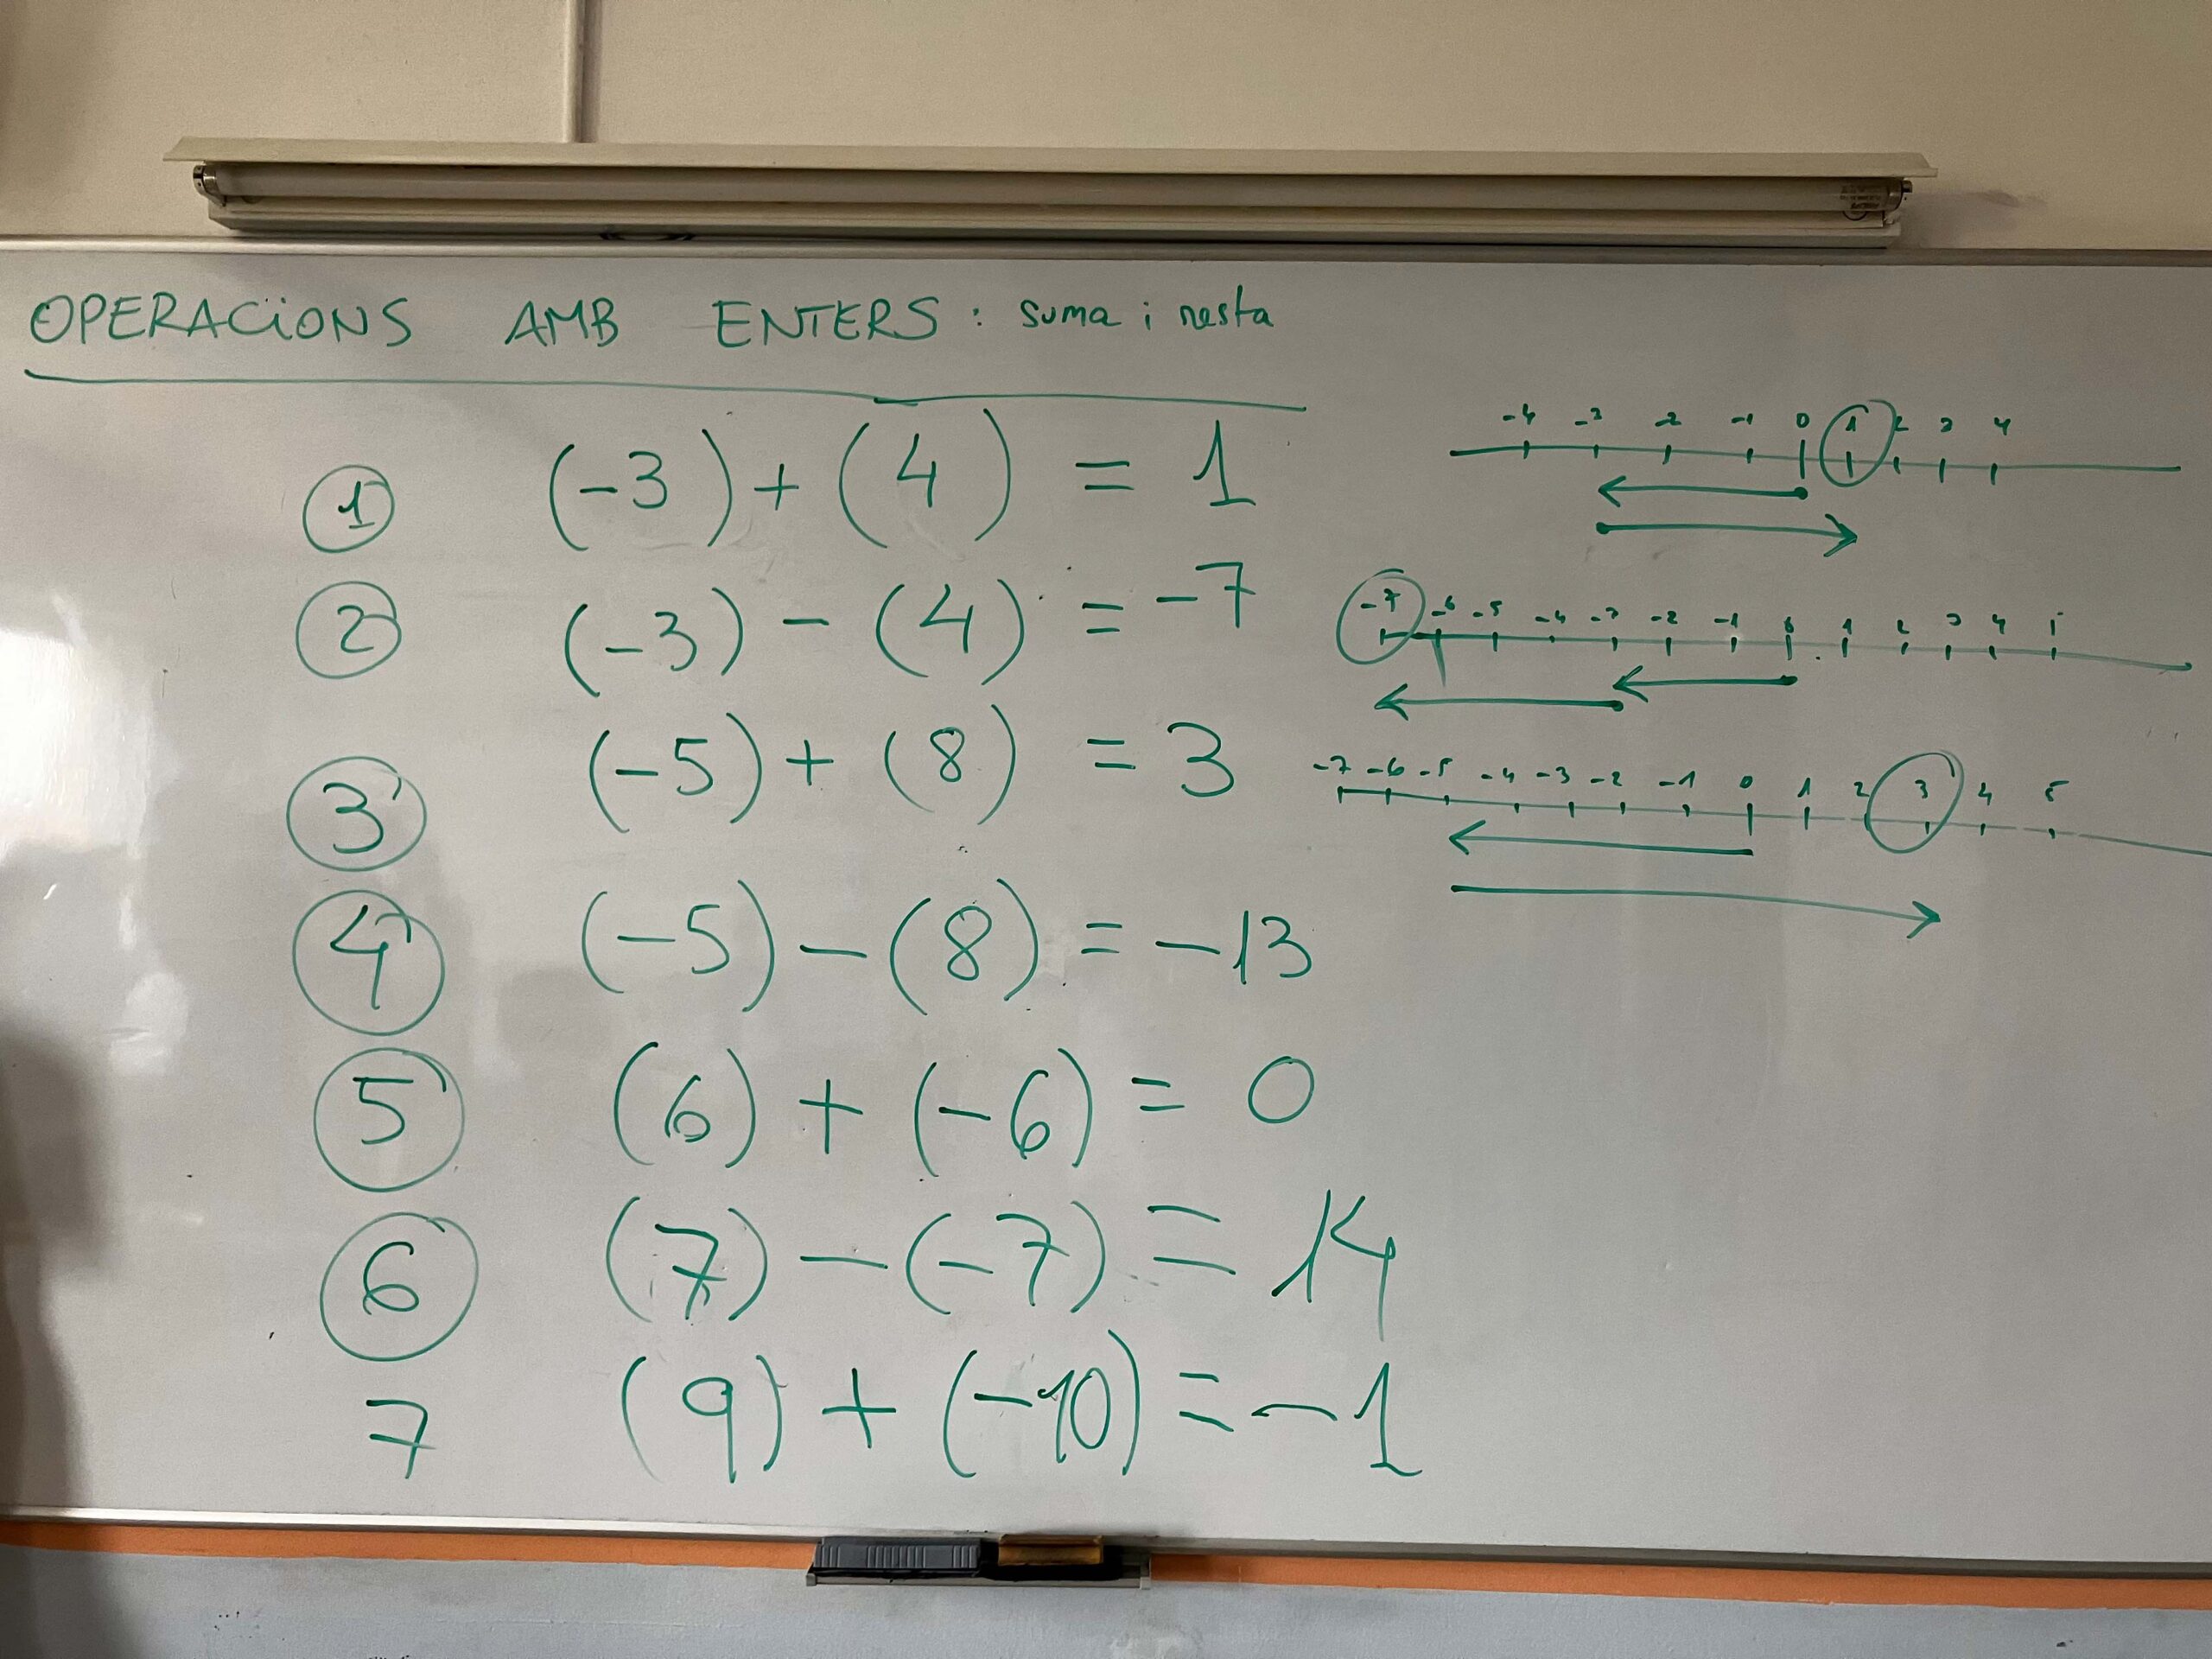 OPERACIONS AMB ENTERS: suma i resta
1 (-3) + (4) = 1
-4 -3 -2 -1 0 1 2 3 4
2 (-3) - (4) = -7
-7 -6 -5 -4 -3 -2 -1 0 1 2 3 4
3 (-5) + (8) = 3
-7 -6 -5 -4 -3 -2 -1 0 1 2 3 4 5
4 (-5) - (8) = -13
5 (6) + (-6) = 0
6 (7) - (-7) = 14
7 (9) + (-10) = -1